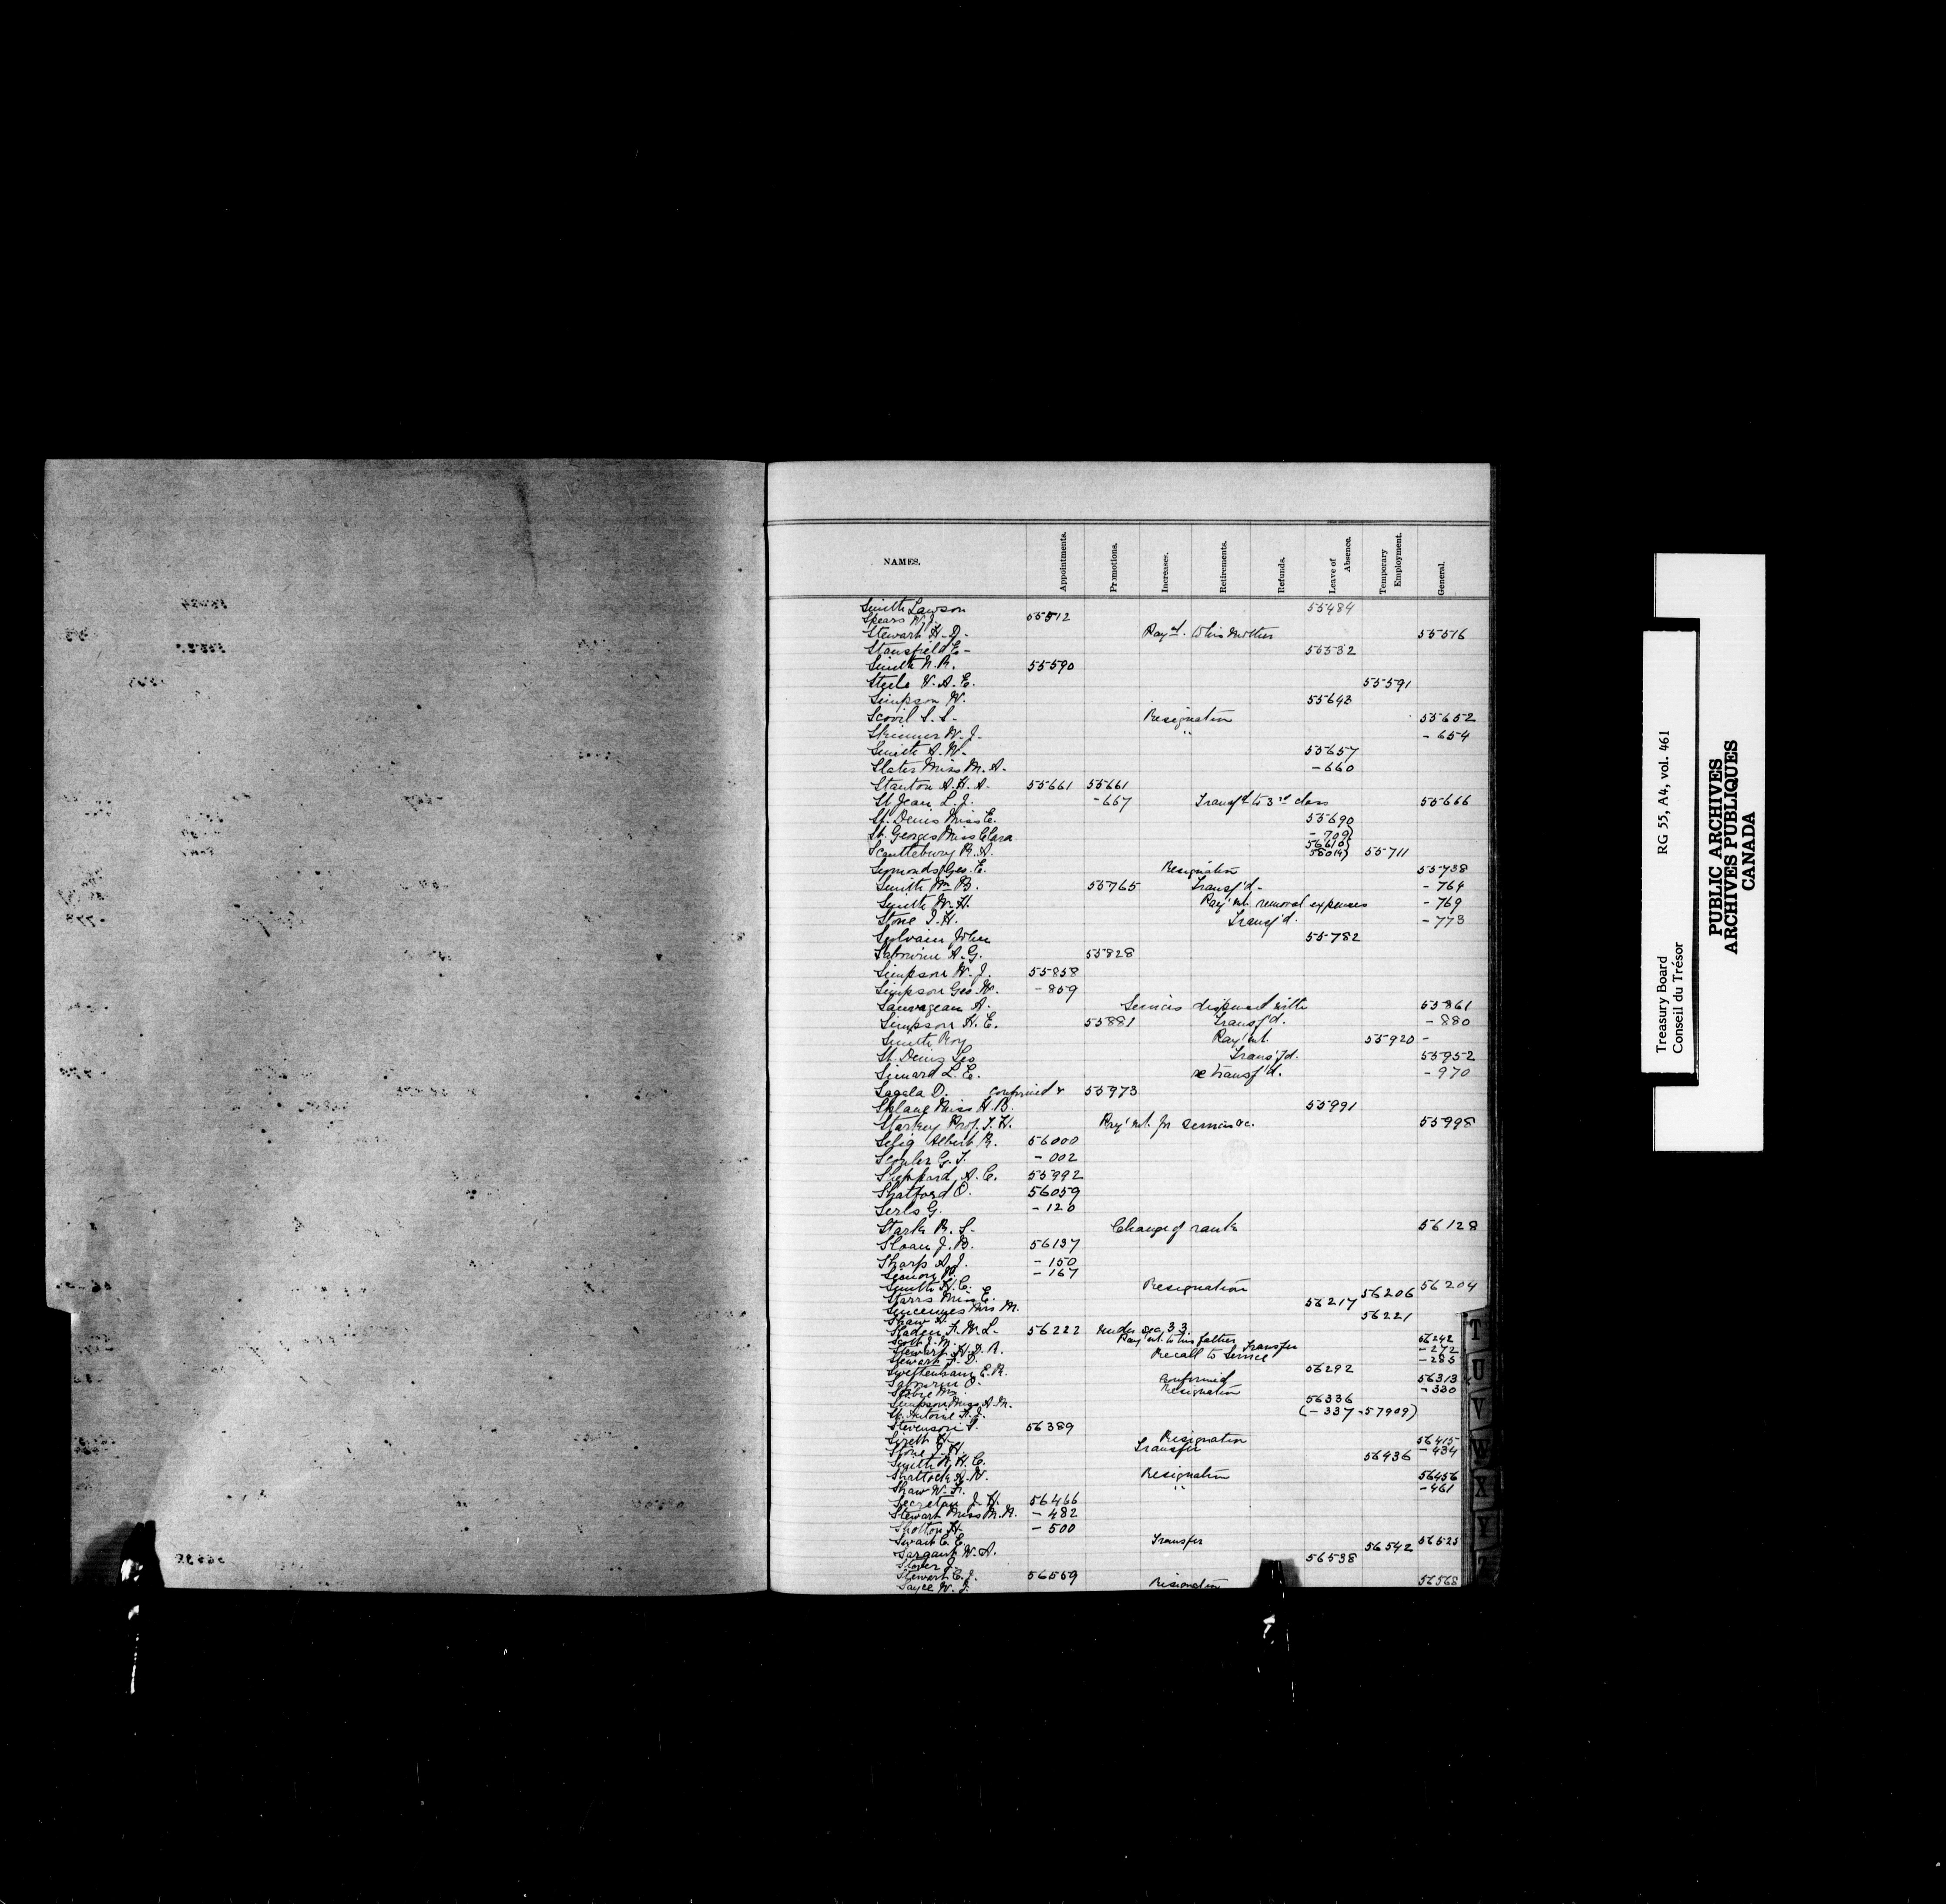 NAMES. Appointments. Promotions. Increases. Retirements. Refunds. Leave of Absence. Temporary Employment. General.
Smith Lawson 55484
Spears W. J. 55512
Stewart H. J. Pay't. to his mother 55516
Stansfield E- 55532
Smith N. R. 55590
Steele V. A. E. 55591
Simpson W. 55643
Scovil S. S- Resignation 55652
Skinner W. J- " - 654
Smith A. W- 55657
Slater Miss M. A. - 660
Stanton A. H. A. 55661 55661
St Jean L. J. - 667 Transf'd to 3rd class 55666
St. Denis Miss E. 55690
St. Georges Miss Clara - 709
Scantlebury R. A. 56610 58014 55711
Symonds Geo. E. Resignation 55738
Smith Wm B. 55765 Transf'd- - 764
Smith W. H. Pay'mt. removal expenses - 769
Stone J. H. Transf'd. - 773
Sylvain John 55782
Sabourin A. G. 55828
Simpson W. J. 55858
Simpson Geo W. - 859
Sauvageau A. Services dispensed with 55861
Simpson H. E. 55881 Transf'd. - 880
Smith Roy Pay'mt. 55920 -
St. Denis Geo Transf'd. 55952
Simard L. E. re transf'd. - 970
Sagala D. confirmed & 55973
Splane Miss H. B. 55991
Starkey Prof. T. H. Pay'mt. for services &c. 55998
Selig Albert R. 56000
Scoyler G. T. - 002
Sheppard, A. C. 55992
Shatford O. 56059
Serls G. - 120
Stark R. S- Change of rank 56128
Sloan J. B. 56137
Sharp A. J. - 150
- 167
Smith H. C. Resignation 56204
Starrs Miss E. 56206
Mrs M. 56217
Shaw H. 56221
Sladen F. W. L- 56222 under sec. 33.
Scott J. M. Transfer 56242
Stewart H. D. A. Pay'mt. to his father - 272
Stewart F. D. Recall to service - 285
Swettenham E. R. 56292
Sabourin O. confirmed 56313
Stobie Wm. Resignation - 330
Simpson Miss A. M. 56336
St. Antoine F. J. (- 337 - 57909)
Stevenson S. 56389
Sirett H. Resignation 56415
Stone J. H. Transfer - 434
Smith R. H. C. 56436
Shattock A. W. Resignation 56456
Shaw W. F. " - 461
Secretan J. H. 56466
Stewart Miss M. R. - 482
Shotton H. - 500
Swait C. E. Transfer 56525
Sargant W. A. 56542
Slater J. 56538
Stewart C. J. 56559
Sayce W. J. Resignation 56568
T
U
V
W
X
Y
Z
Treasury Board RG 55, A4, vol. 461
Conseil du Trésor
PUBLIC ARCHIVES
ARCHIVES PUBLIQUES
CANADA